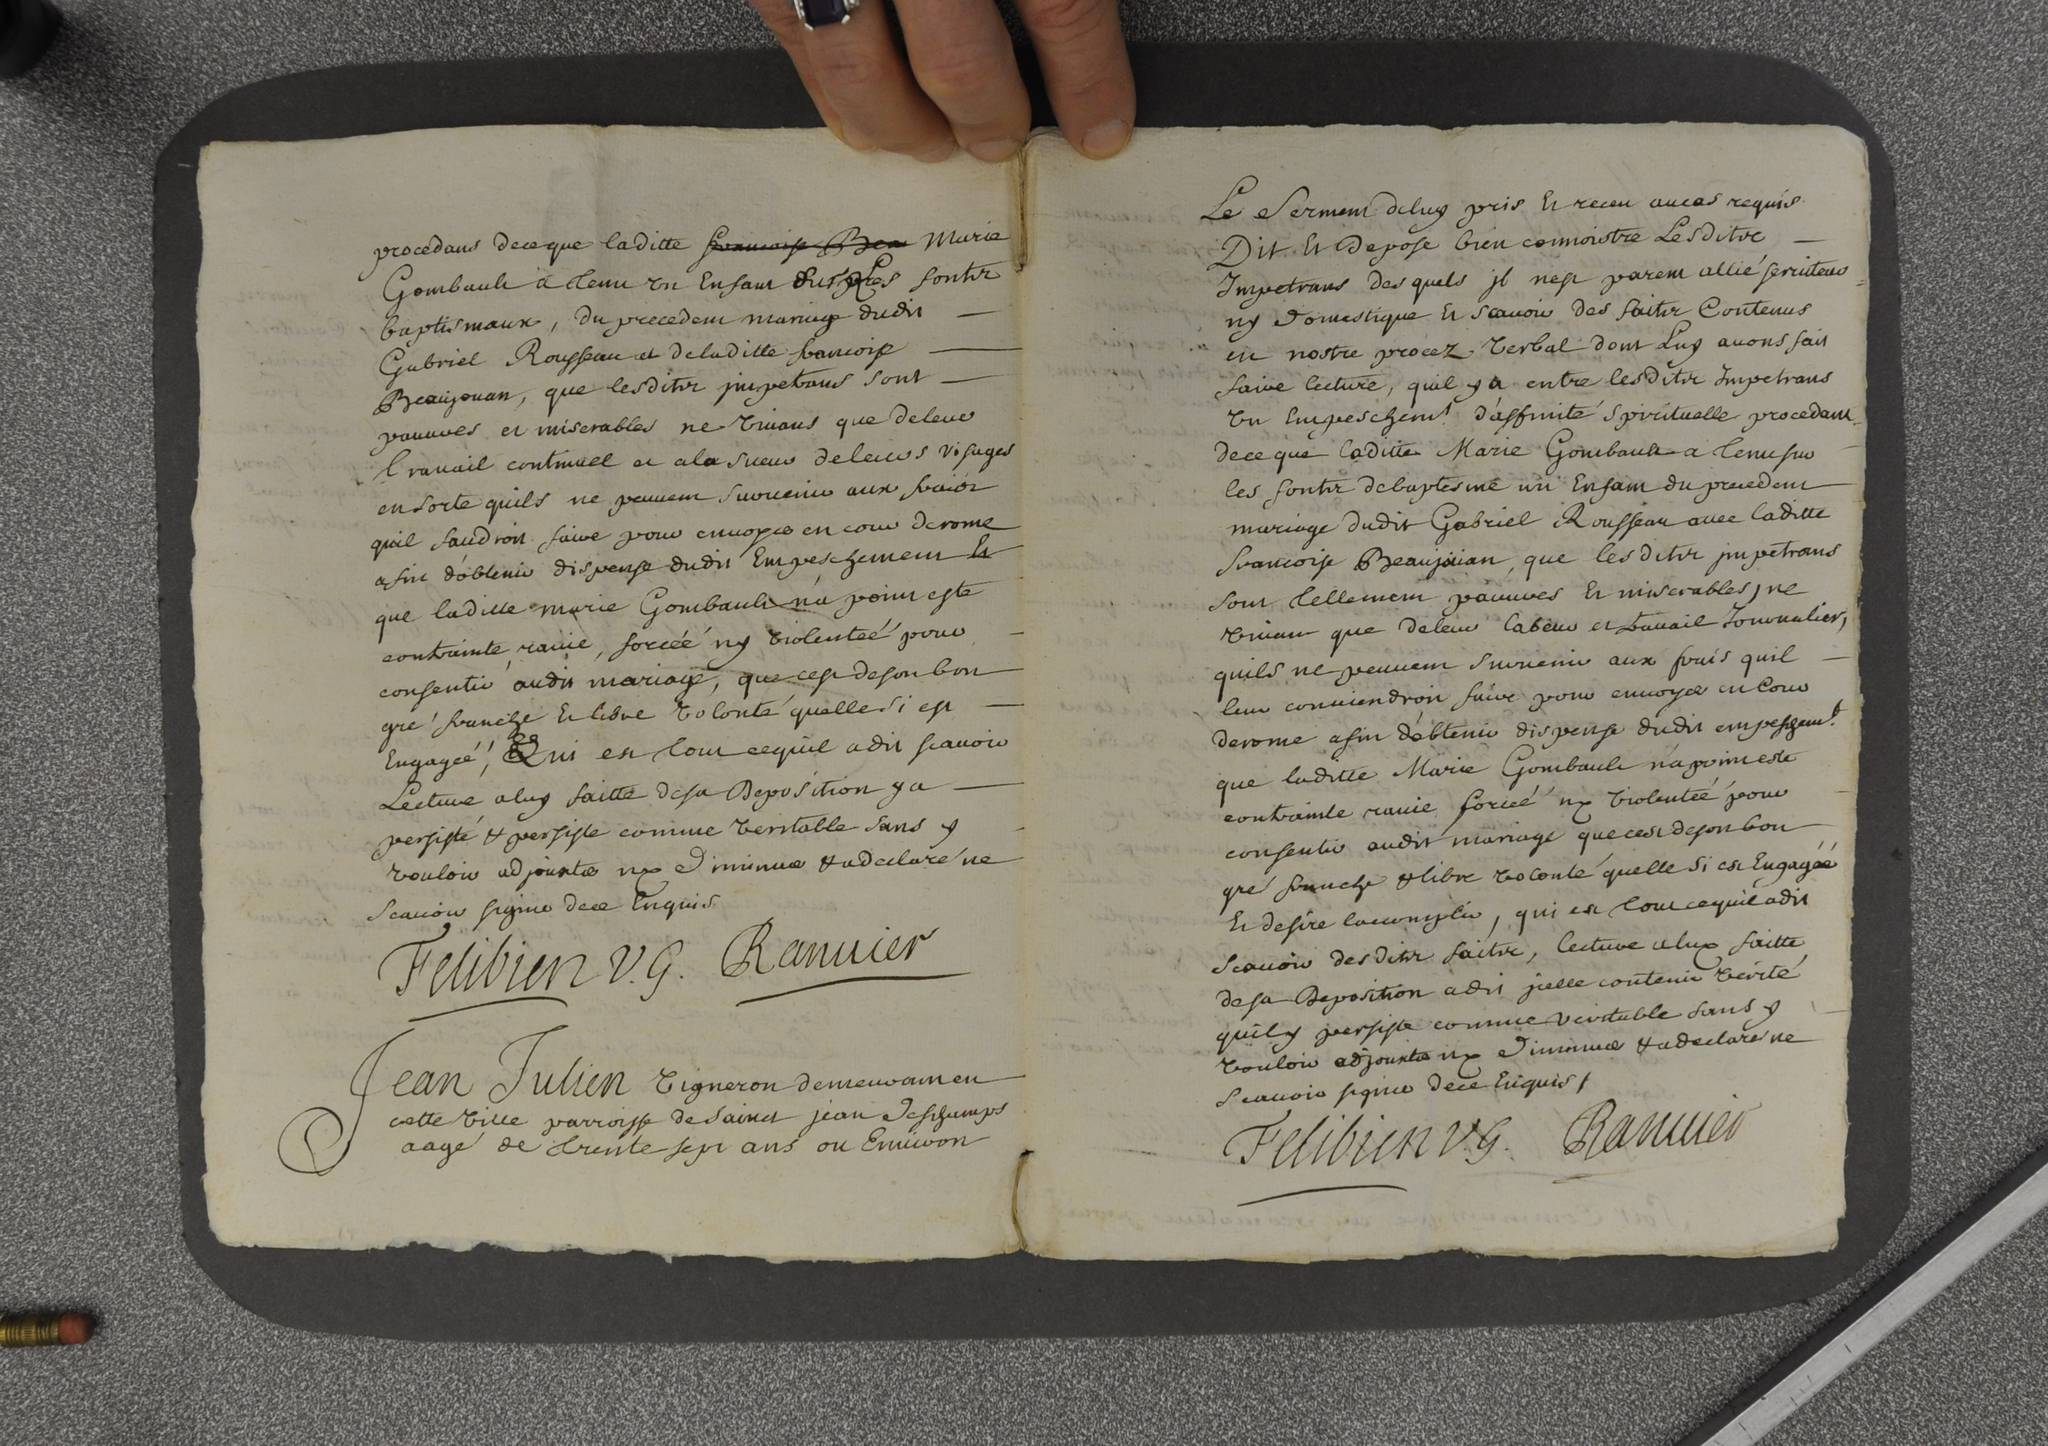 procedans de ce que laditte francoise Bea Marie
Gombault a tenu un Enfant sur Les fonts
baptismaux, du precedent mariage dudit
Gabriel Rousseau et de laditte francoise
Beaujouan, que lesdits impetrans sont
pauvres et miserables ne vivans que de leur
travail continuel et a la sueur de leurs visages
en sorte quils ne peuvent survenir aux frais
quil faudroit faire pour envoyer en cour de rome
afin d'obtenir dispense dudit Empeschement Et
que laditte marie Gombault n'a point este
contrainte, ravie, forcéé ny violentéé pour
consentir audit mariage, que cest de son bon
gré franche Et libre volonté quelle si est
Engagéé, Qui est tout ce quil a dit scavoir
Lecture a luy faitte de sa Deposition y a
persisté & persiste comme veritable sans y
vouloir adjouter ny Diminuer & a declaré ne
scavoir signer de ce Enquis
Felibien V.G. Ranuier
Jean Julien vigneron demeurant en
cette ville parroisse de Sainct jean Deschamps
aagé de trente sept ans ou Environ
Le Serment de luy pris Et receu au cas requis
Dit Et Depose bien connoistre Lesdits
Impetrans desquels jl nest parent allié serviteur
ny Domestique Et scavoir des faits Contenus
en nostre procez verbal dont Luy avons fait
faire lecture, quil y a entre lesdits Impetrans
vn Empeschemt. d'affinité spirituelle procedant
de ce que laditte Marie Gombault a tenu sur
les fonts de baptesme un Enfant du precedent
mariage dudit Gabriel Rousseau avec laditte
francoise Beaujouan, que lesdits jmpetrans
sont tellement pauvres Et miserables, ne
vivant que de leur labeur et travail Journalier,
quils ne peuvent survenir aux frais quil
leur conviendroit faire pour envoyer en Cour
de rome afin d'obtenir dispense dudit empeschemt.
que laditte Marie Gombault n'a point este
contrainte ravie forcéé ny violentéé pour
consentir audit mariage que cest de son bon
gré franche & libre volonté quelle si est Engagéé
Et desire laccomplir, qui est tout ce quil a dit
scavoir desdits faits, lecture a luy faitte
de sa Deposition a dit jcelle contenir vérité
quil y persiste comme veritable sans y
vouloir adjouter ny Diminuer & a declaré ne
scavoir signer de ce Enquis
Felibien V.G. Ranuier